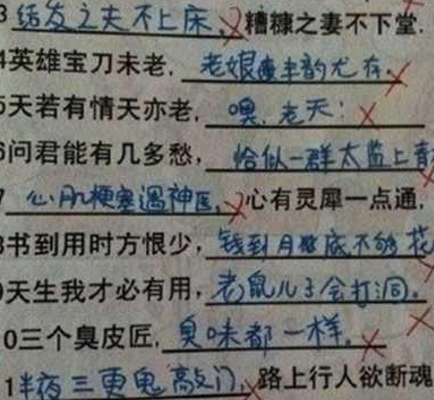 3结发之夫不上床,糟糠之妻不下堂.
4英雄宝刀未老,老娘丰韵尤存.
5天若有情天亦老,噢,老天!
6问君能有几多愁,恰似一群太监上青
7心肌梗塞遇神医,心有灵犀一点通,
8书到用时方恨少,钱到月底不够花
9天生我才必有用,老鼠儿子会打洞。
10三个臭皮匠,臭味都一样。
1半夜三更鬼敲门,路上行人欲断魂